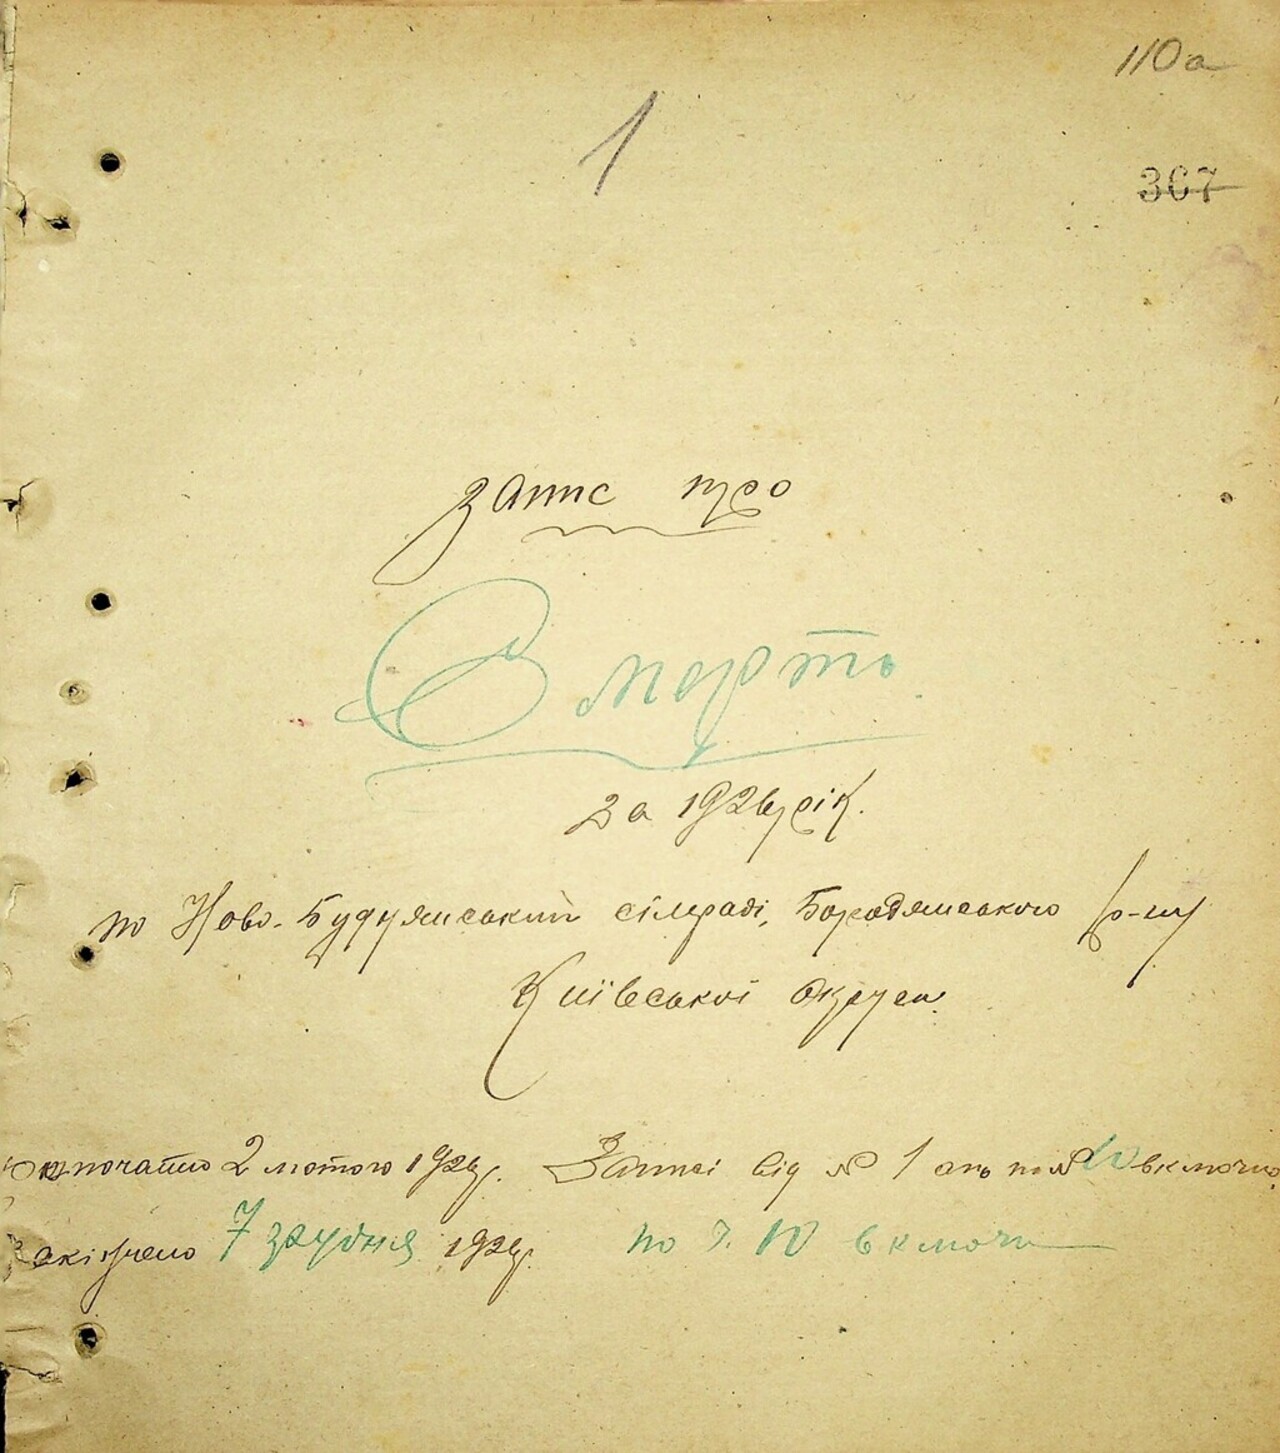 110а
1
367
Запис про
Смерть.
за 192 рік.
по Ново-Будянський сільраді, Бородянського р-ну
Київської округи.
Розпочато 2 лютого 192 р. Записі від № 1 ать по № 10 включно.
Закінчено 7 грудня 192 р. по № 10 включн